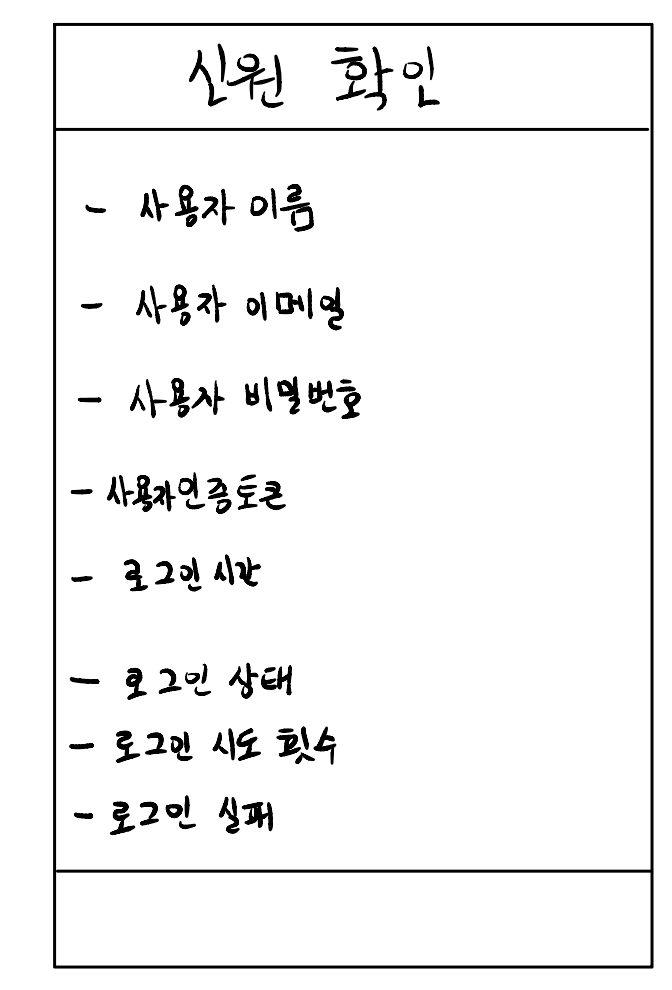 신원 확인
- 사용자 이름
- 사용자 이메일
- 사용자 비밀번호
- 사용자인증토큰
- 로그인 시간
- 로그인 상태
- 로그인 시도 횟수
- 로그인 실패